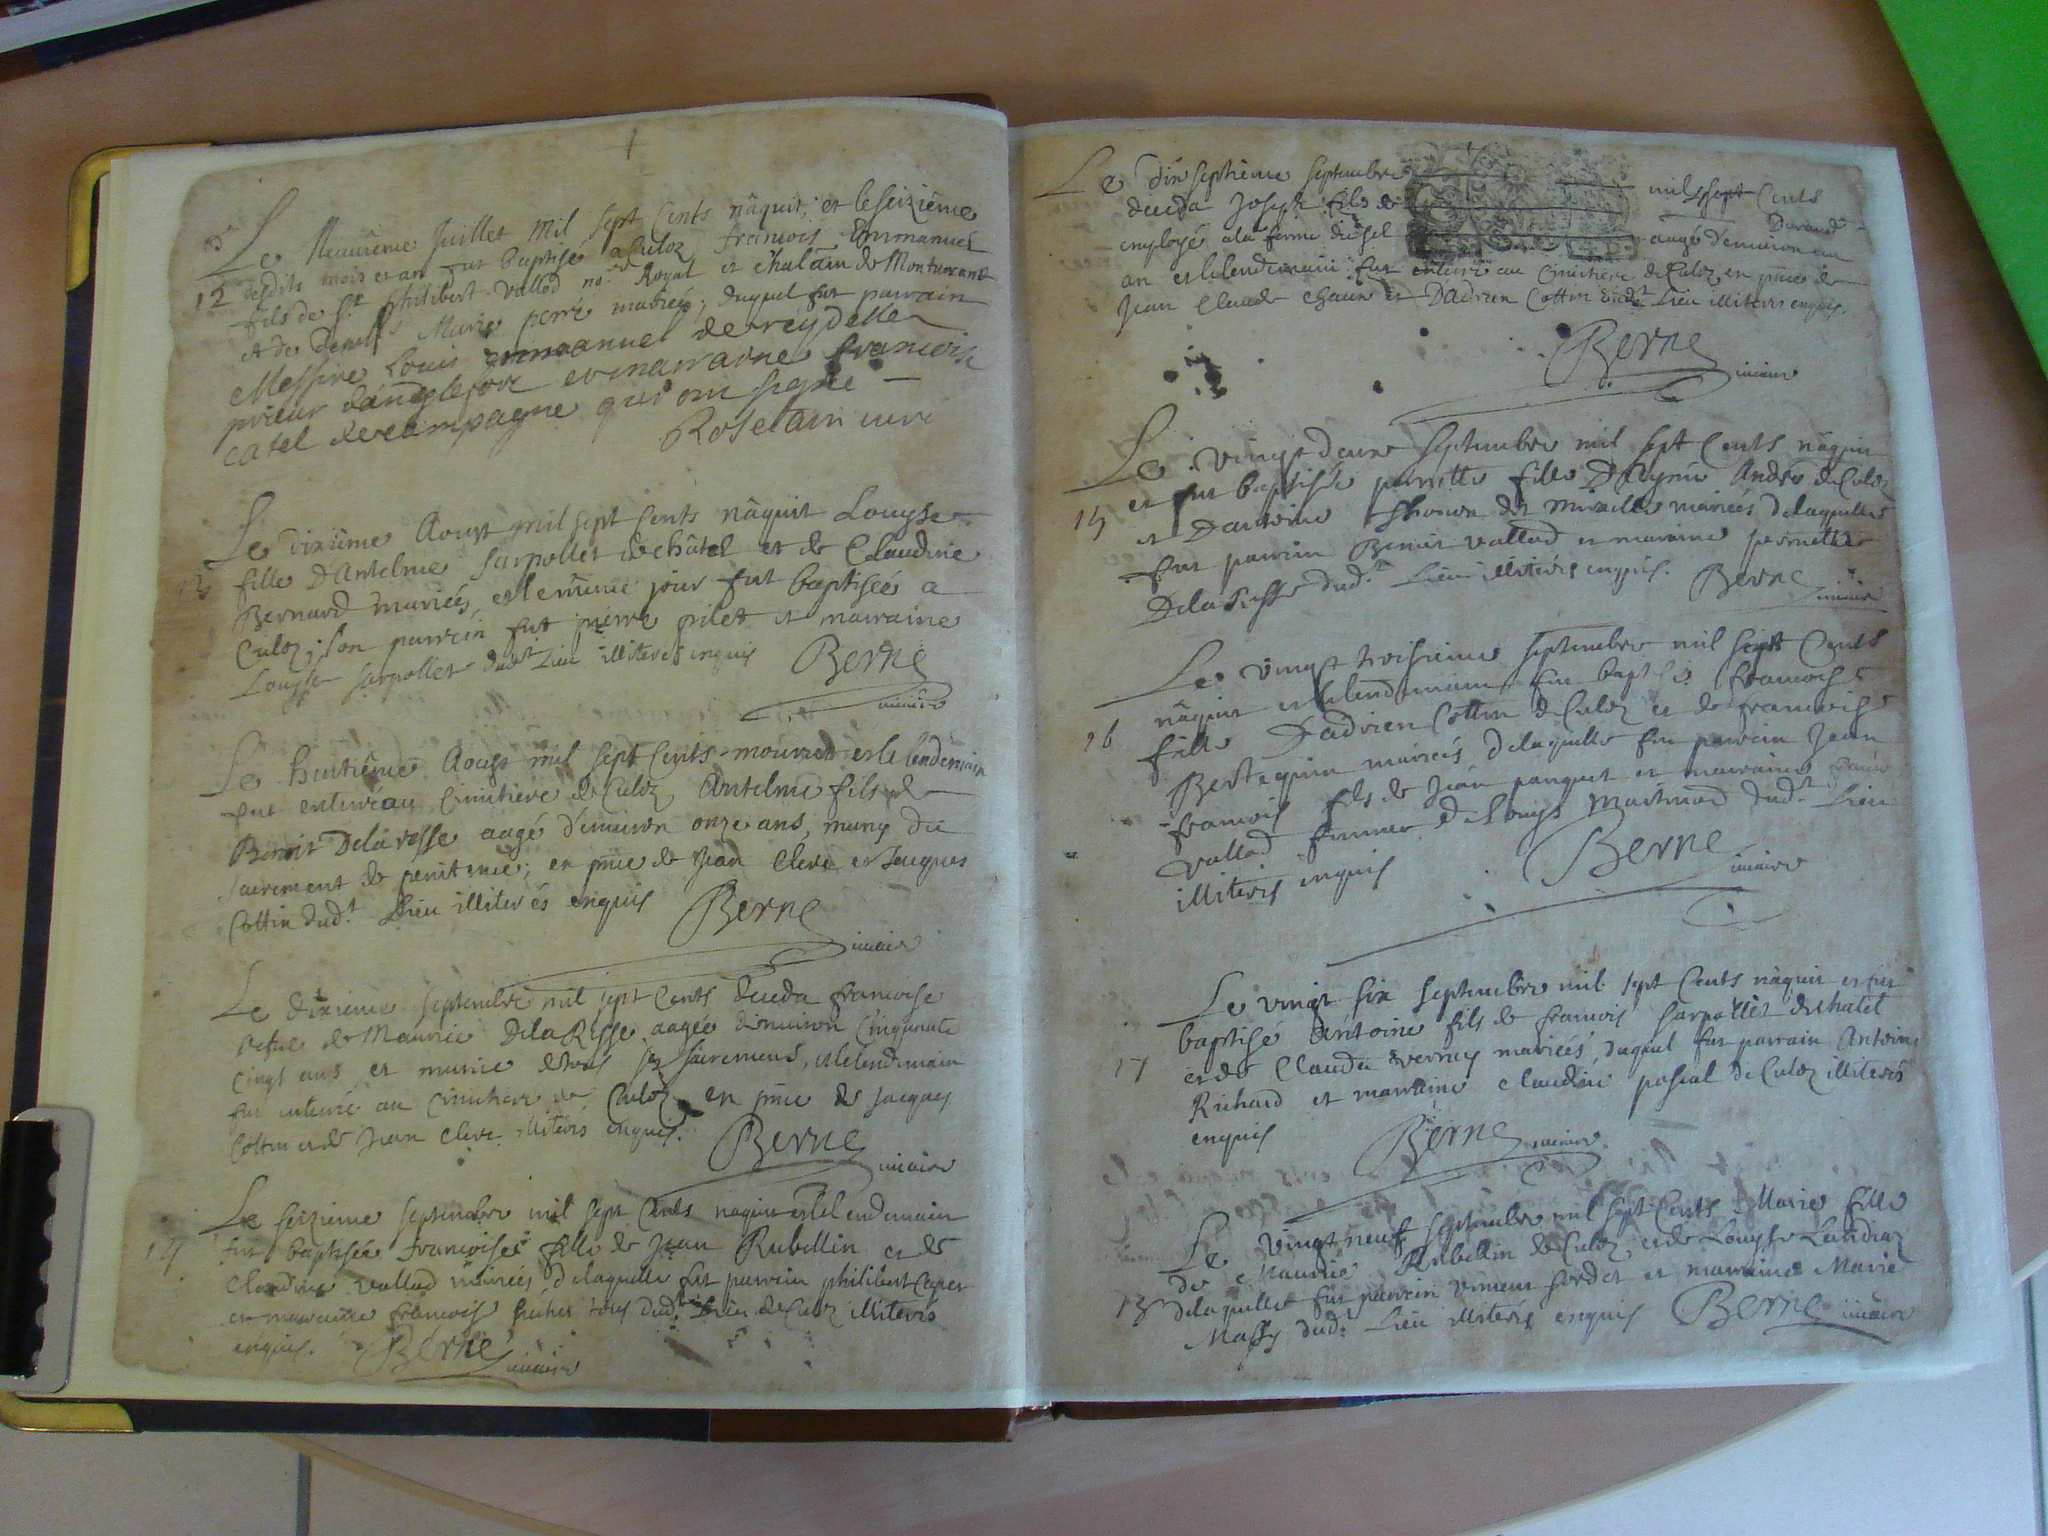 Le Neuviême Juillet Mil sept Cents nâquit, et le seiziême
12 desdits mois et an fut baptisé a Culoz francois Emmanuel
fils de Sr. philibert vallod no.re Royal et châtelain de
et de Marie perré mariés, duquel fut parrain
Messire Louis emmanuel de reydellet
prieur danglefor et marraine francoise
catel de campagne qui ont signé
Roselain curé
Le dixiême Aoust mil sept Cents nâquit Louyse
13 fille D'Antelme Sarpollet de châtel et de Claudine
Bernard mariés, et le même jour fut baptisée a
Culoz; son parrein fut pierre pilet et marraine
Louyse Sarpollet dudt Lieu illiterés enquis Berne
vicaire
Le huitiême Aoust mil sept Cents mourut et le lendemain
fut enterré au Cimitiere de Culoz Antelme fils de
Benoit Delarasse aagé d'environ onze ans, muny du
sacrement de penitence; en pnce de Jean Clerc et Jacques
Cottin dudt. Lieu illiterés enquis Berne
vicaire
Le dixieme septembre mil sept Cents deceda francoise
de Maurice Dela Rasse aagée d'environ Cinquante
Cinqt ans et munie de tous ses sacremens, et le lendemain
fut enterré au Cimitiere de Culoz en pnce de Jacques
Cottin et de Jean Clerc illiterés enquis. Berne
vicaire
Le seizieme septembre mil sept Cents naquit et le lendemain
14 fut baptisée francoise fille de Jean Rubellin et de
Claudine vallod mariés, delaquelle fut parrain philibert
et marraine francoise tous dudt Lieu de Culoz illiterés
enquis. Berne
vicaire
Le dix septieme septembre mil sept Cents
deceda Joseph fils de Durand
employé a la ferme du sel aagé d'environ un
an et le lendemain fut enterré au Cimitiere de Culoz en pnce de
Jean Claude et D'Adrien Cottin dudt Lieu illiterés enquis.
Berne
vicaire
Le vingt deux septembre mil sept Cents nâquit
15 et fut baptisée pernette fille D'Aymé André de Culoz
et mariés delaquelle
fut parrain Benoit vallod et maraine pernette
Dela Rasse dudt. Lieu illiterés enquis. Berne
vicaire
Le vingt troisieme septembre mil sept Cents
16 nâquit et le lendemain fut baptisée francoise
fille D'adrien Cottin de Culoz et de francoise
Berthequin mariés delaquelle fut parrain Jean
francois fils de Jean parquet et marraine
vallod femme de Louys Martinod dudt. Lieu
illiterés enquis Berne
vicaire
Le vingt six septembre mil sept Cents nâquit et fut
baptisé Antoine fils de francois Sarpollet de chatel
17 et de Claudie mariés, duquel fut parrain Antoine
Richard et marraine Claudine pascal de Culoz illiterés
enquis Berne vicaire
Le vingt neuf septembre mil sept Cents Marie fille
de Maurice Rubellin de Culoz et de Louyse
18 delaquelle fut parrain et marraine Marie
Massy dudt Lieu illiterés enquis Berne vicaire